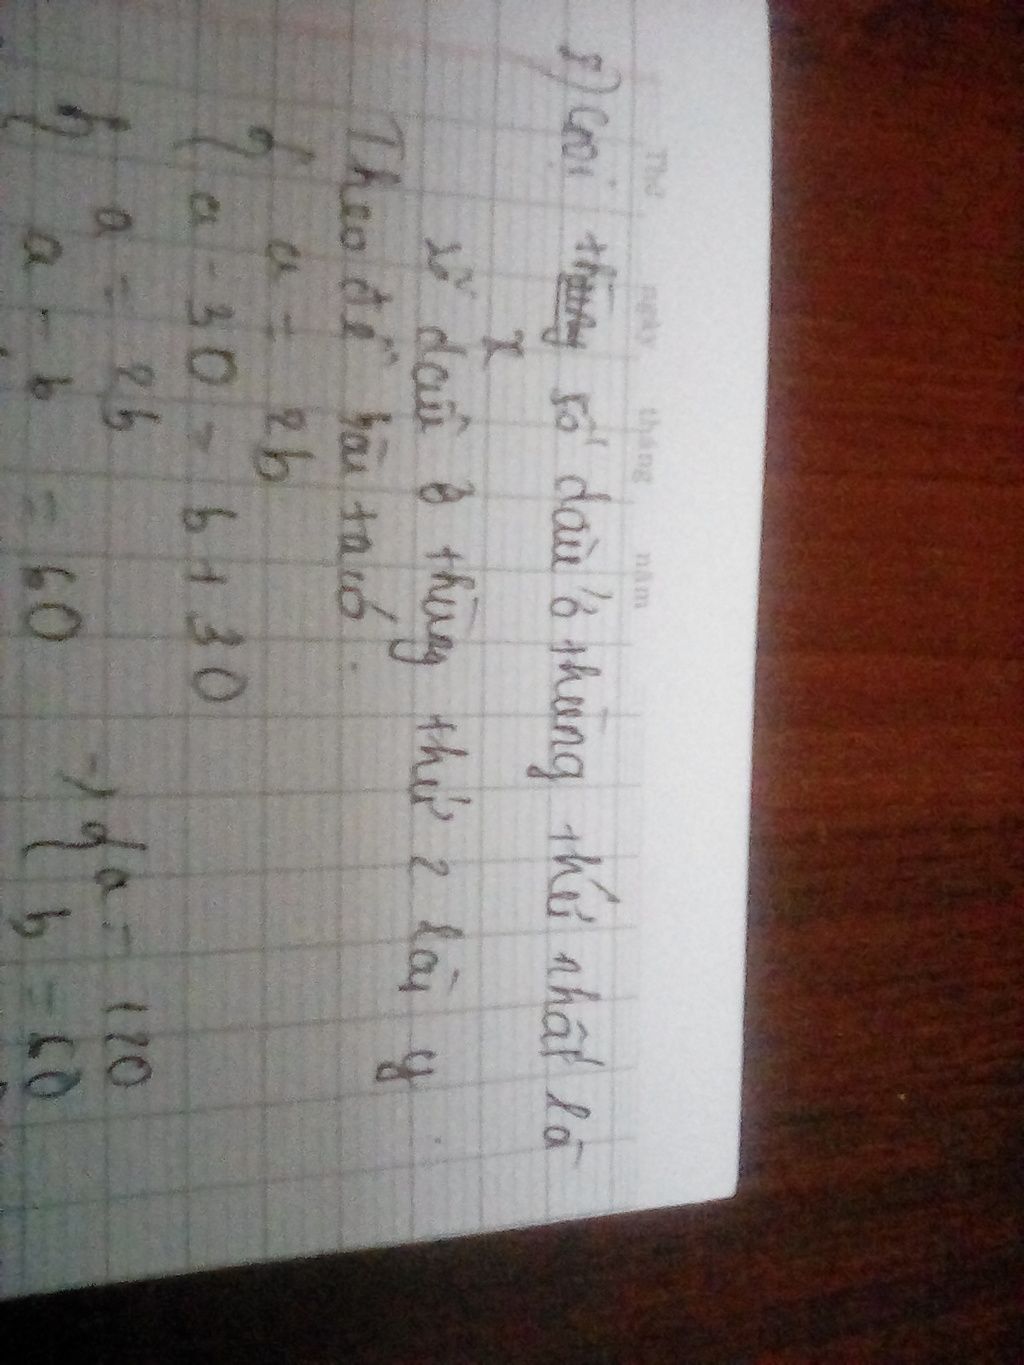 Thứ ngày tháng năm
8) Gọi số dầu ở thùng thứ nhất là
x
số dầu ở thùng thứ 2 là y
Theo đề bài ta có.
{ a = 2b
{ a - 30 = b + 30
{ a = 2b
{ a - b = 60
→ { a = 120
{ b = 60